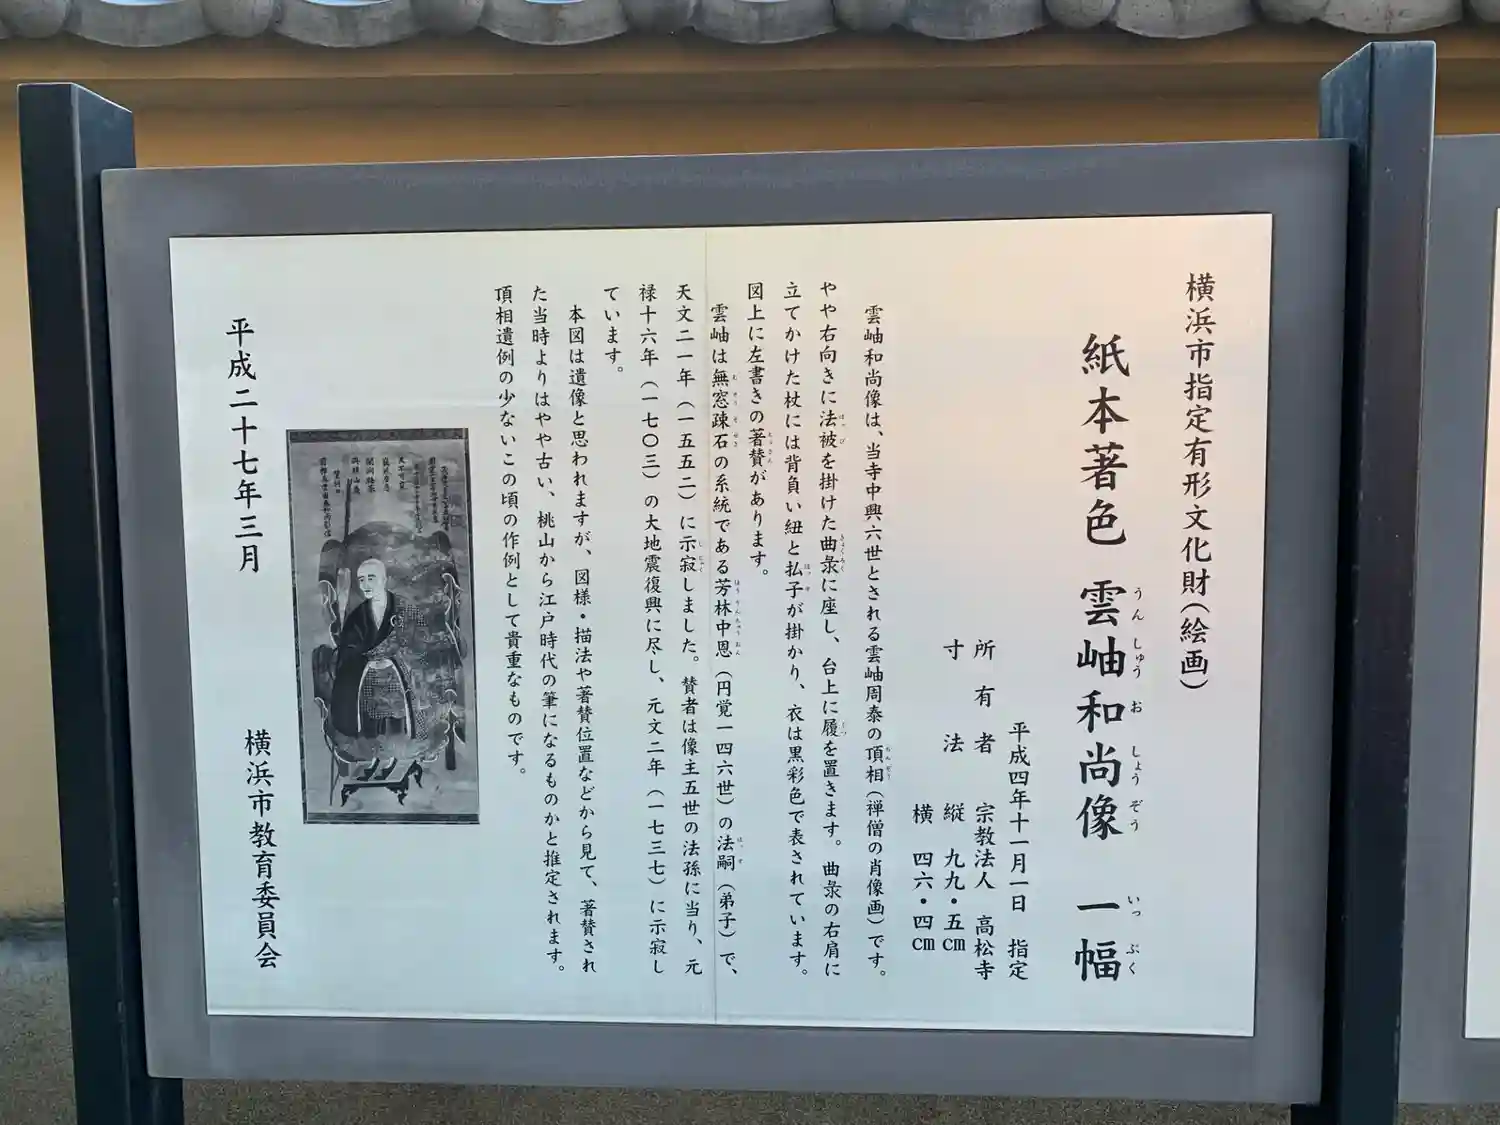 横浜市指定有形文化財(絵画)
紙本著色 雲岫和尚像 一幅
うんしゅうおしょうぞう いっぷく
平成四年十一月一日 指定
所有者 宗教法人 高松寺
寸法 縦 九九・五cm
横 四六・四cm
雲岫和尚像は、当寺中興六世とされる雲岫周泰の頂相(禅僧の肖像画)です。
やや右向きに法被を掛けた曲彔に座し、台上に履を置きます。曲彔の右肩に
立てかけた杖には背負い紐と払子が掛かり、衣は黒彩色で表されています。
図上に左書きの著賛があります。
雲岫は無窓疎石の系統である芳林中恩(円覚一四六世)の法嗣(弟子)で、
天文二一年(一五五二)に示寂しました。賛者は像主五世の法孫に当り、元
禄十六年(一七〇三)の大地震復興に尽し、元文二年(一七三七)に示寂し
ています。
本図は遺像と思われますが、図様・描法や著賛位置などから見て、著賛され
た当時よりはやや古い、桃山から江戸時代の筆になるものかと推定されます。
頂相遺例の少ないこの頃の作例として貴重なものです。
平成二十七年三月
横浜市教育委員会